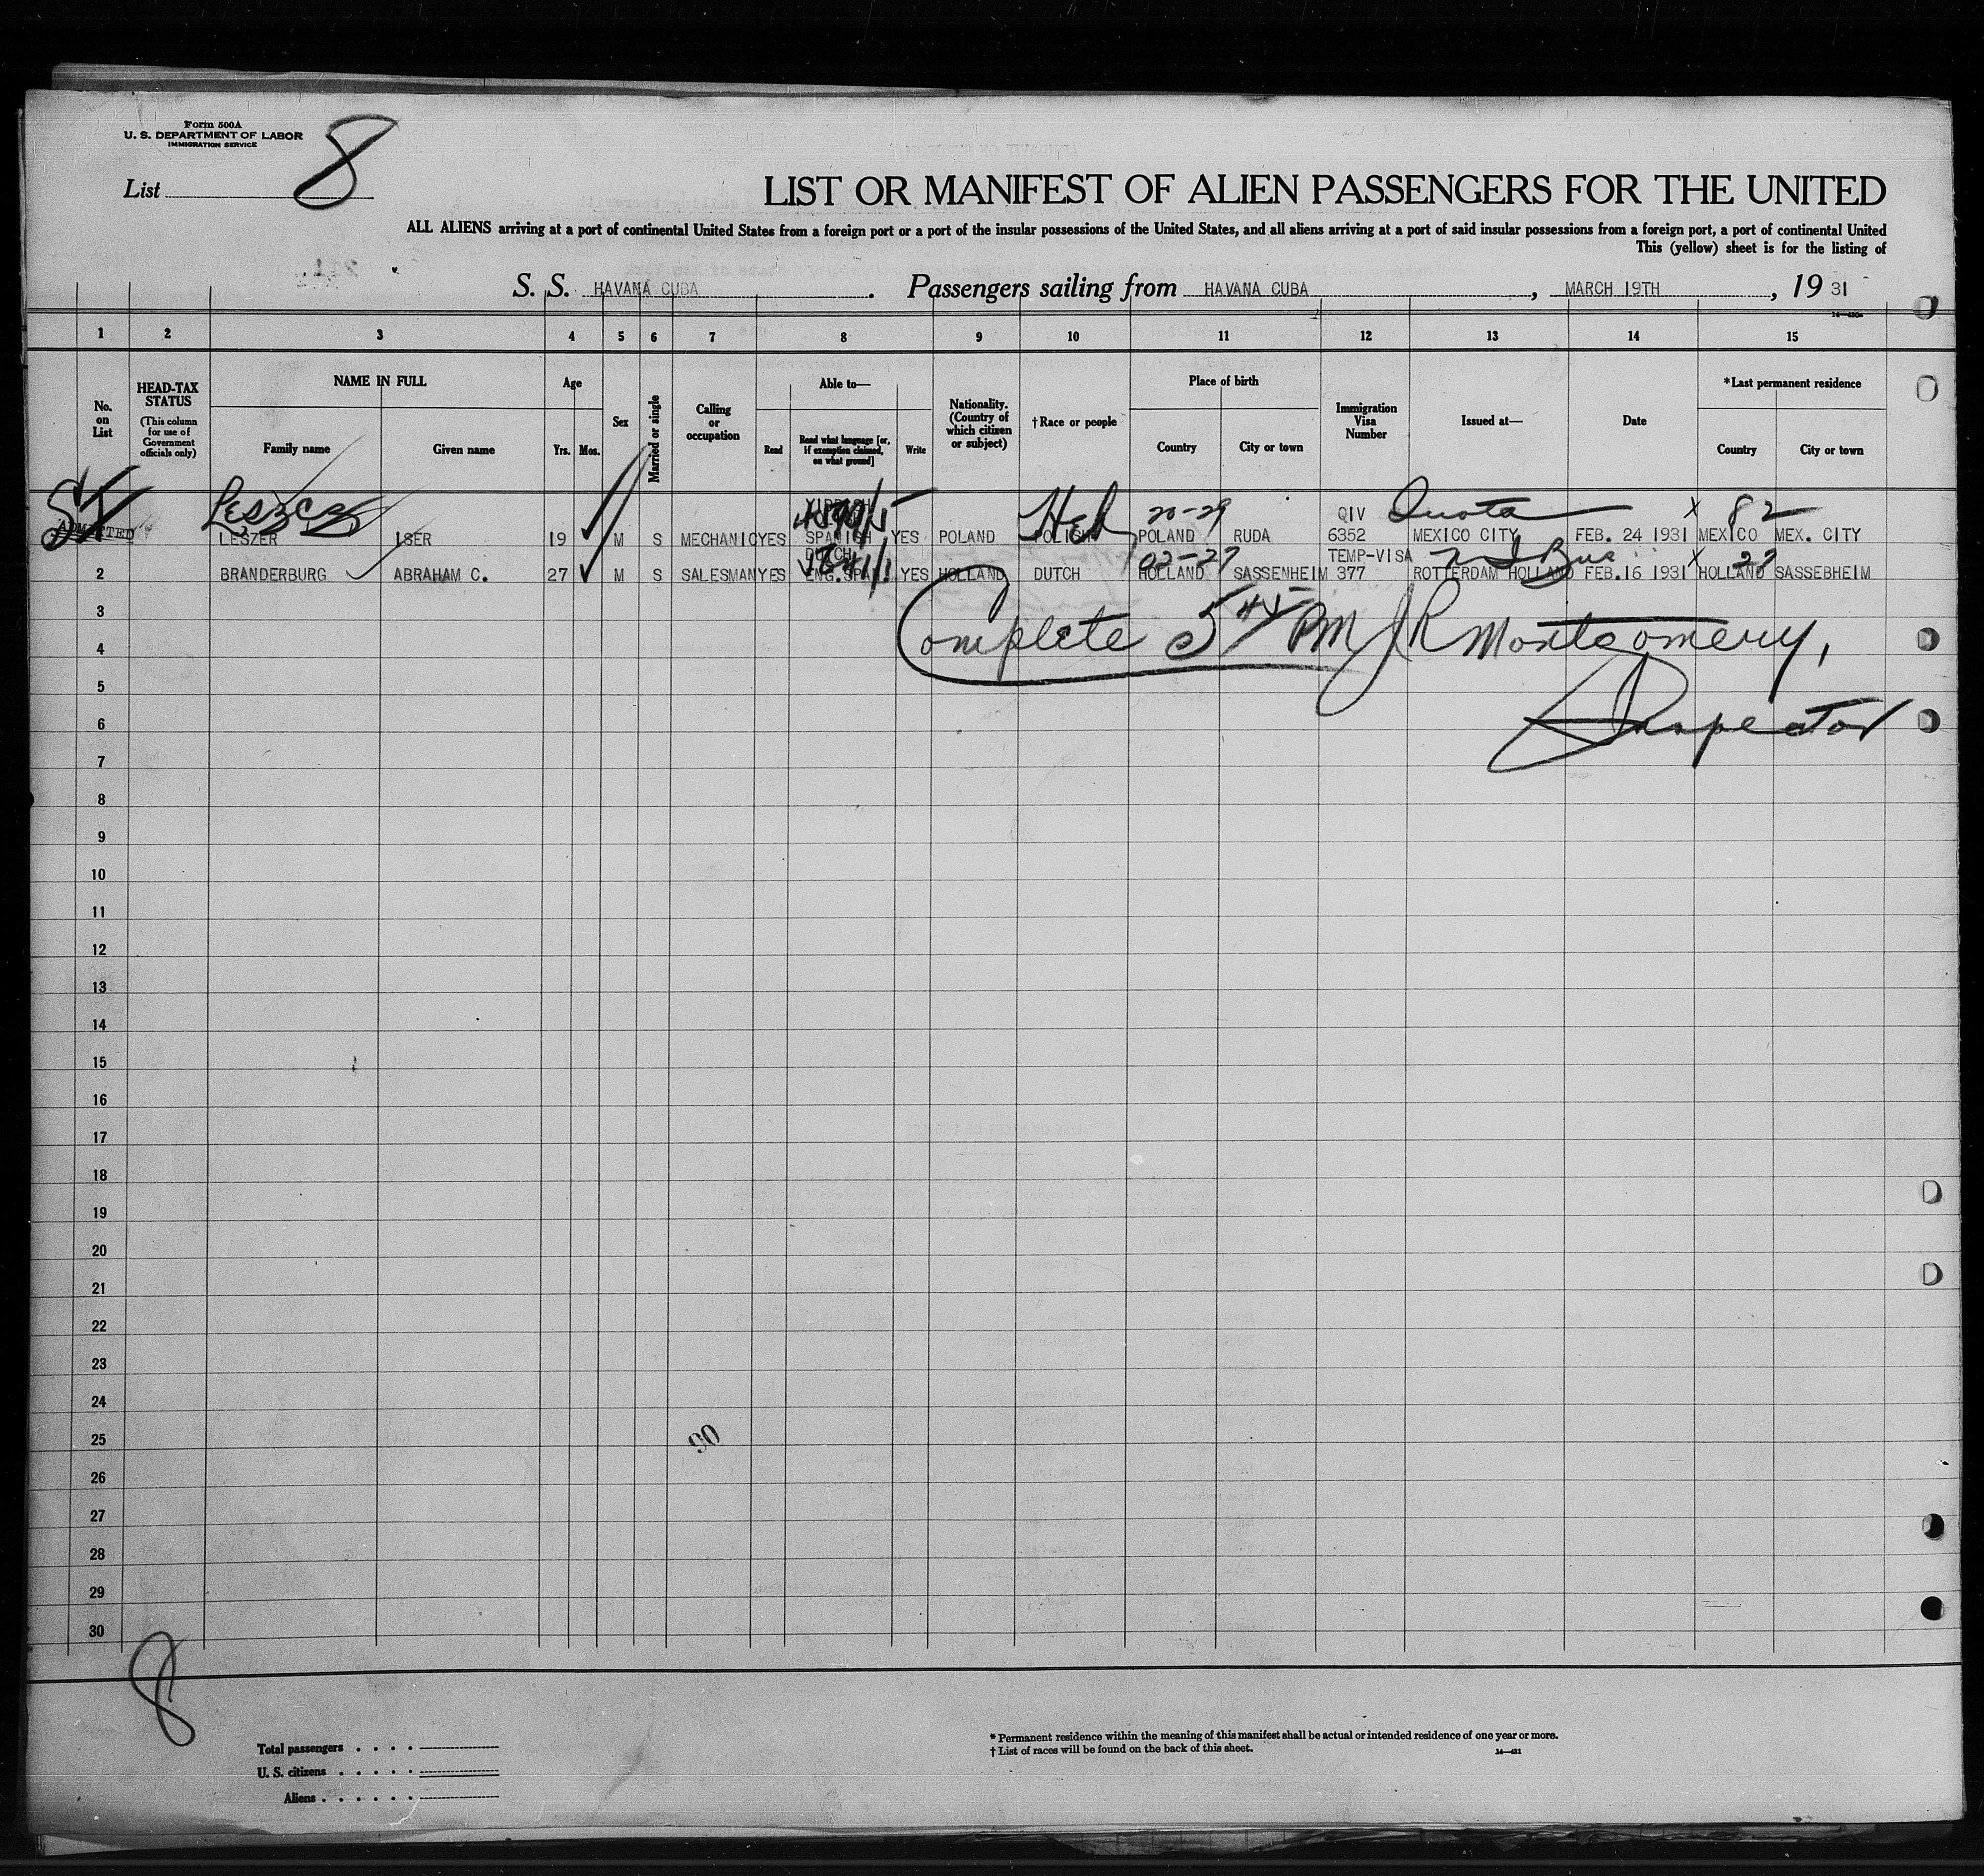 Form 500A
U. S. DEPARTMENT OF LABOR
IMMIGRATION SERVICE
List 8
LIST OR MANIFEST OF ALIEN PASSENGERS FOR THE UNITED
ALL ALIENS arriving at a port of continental United States from a foreign port or a port of the insular possessions of the United States, and all aliens arriving at a port of said insular possessions from a foreign port, a port of continental United
This (yellow) sheet is for the listing of
S. S. HAVANA CUBA. Passengers sailing from HAVANA CUBA, MARCH 19TH, 19 31
1 2 3 4 5 6 7 8 9 10 11 12 13 14 15
No. on List
HEAD-TAX STATUS
(This column for use of Government officials only)
NAME IN FULL
Family name Given name
Age
Yrs. Mos.
Sex
Married or single
Calling or occupation
Able to—
Read
Read what language [or, if exemption claimed, on what ground]
Write
Nationality. (Country of which citizen or subject)
†Race or people
Place of birth
Country City or town
Immigration Visa Number
Issued at—
Date
*Last permanent residence
Country City or town
YIDDISH 20-29 QIV Quota X 82
ADMITTED LESZER ISER 19 M S MECHANIC YES SPANISH YES POLAND POLISH POLAND RUDA 6352 MEXICO CITY FEB. 24 1931 MEXICO MEX. CITY
DUTCH 02-27 TEMP-VISA X 27
2 BRANDERBURG ABRAHAM C. 27 M S SALESMAN YES ENG.SPAN YES HOLLAND DUTCH HOLLAND SASSENHEIM 377 ROTTERDAM HOLLAND FEB.16 1931 HOLLAND SASSEBHEIM
3
Complete 5 45 PM JR Montgomery,
4
5
Inspector
6
7
8
9
10
11
12
13
14
15
16
17
18
19
20
21
22
23
24
25
90
26
27
28
29
30
8
Total passengers . . . .
U. S. citizens . . . . .
Aliens . . . . . .
* Permanent residence within the meaning of this manifest shall be actual or intended residence of one year or more.
† List of races will be found on the back of this sheet.
14—431